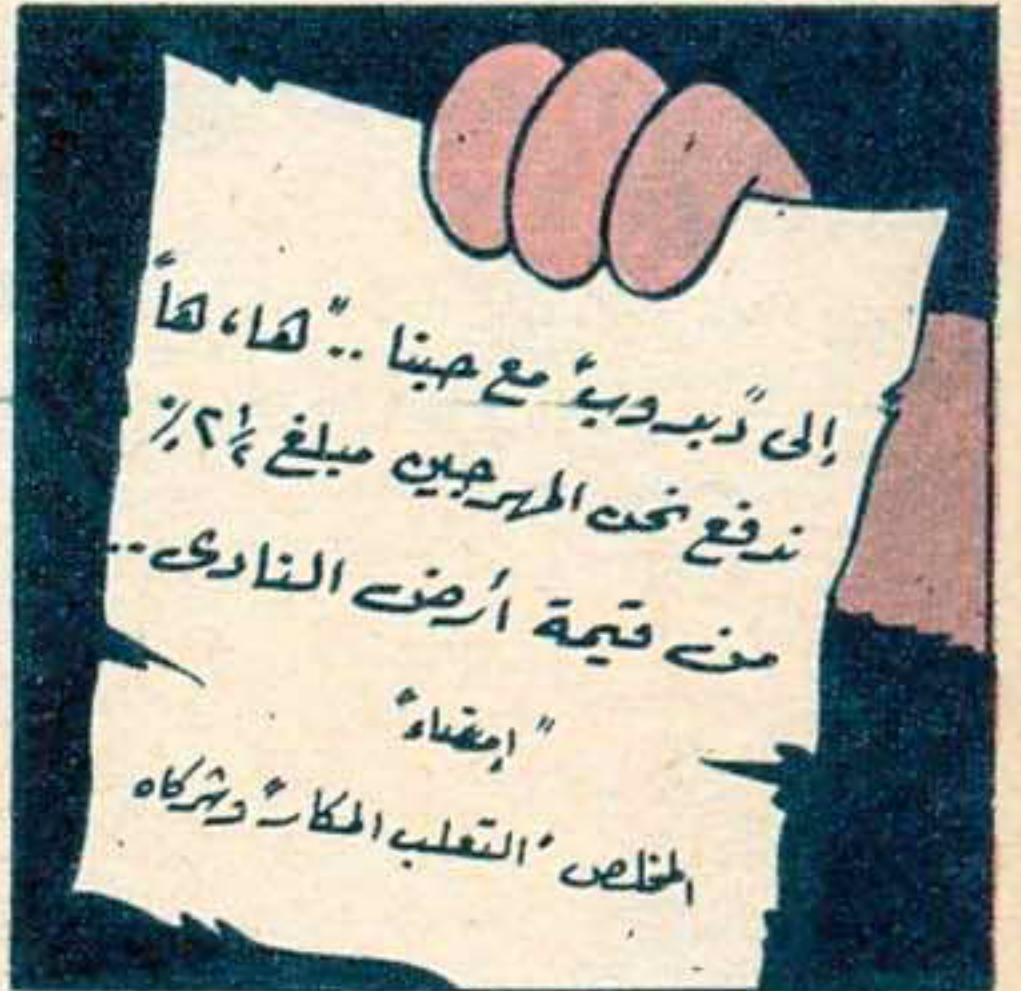 إلى "دبدوب" مع حبنا .. "ها، ها"
ندفع نحن المهرجين مبلغ ٢½٪
من قيمة أرض النادى ..
"إمضاء"
المخلص "الثعلب المكار" وشركاه